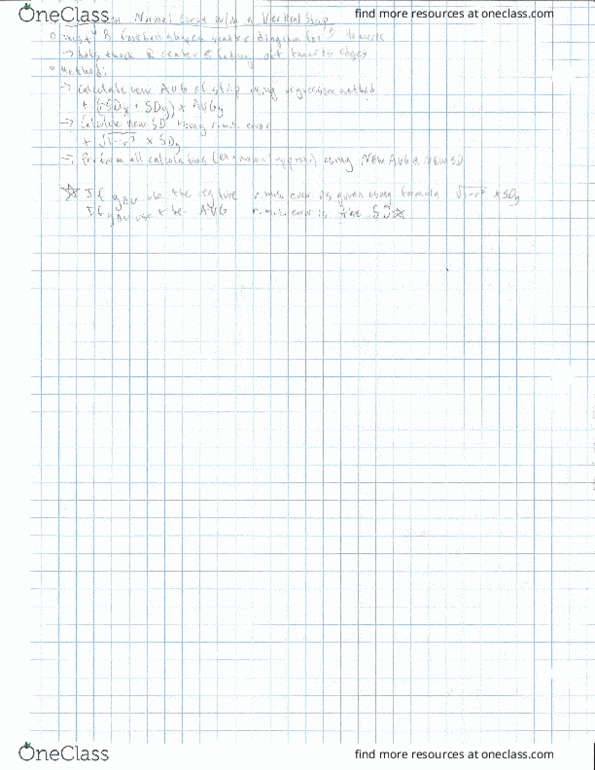 OneClass
find more resources at oneclass.com
Normal Curve with a Vertical Strip
must B football shaped scatter diagram for to work
center & fading off towards edges
Method:
→ Calculate new AVG of strip using regression method
SDy) × AVGy
→ Calculate new SD using r.m.s. error
+ √1-r² × SDy
→ Perform all calculations using NEW AVG & NEW SD
☆ If you use the reg line r.m.s. error is given using formula √1-r² × SDy
If you use the AVG r.m.s. error is the SD
OneClass
find more resources at oneclass.com